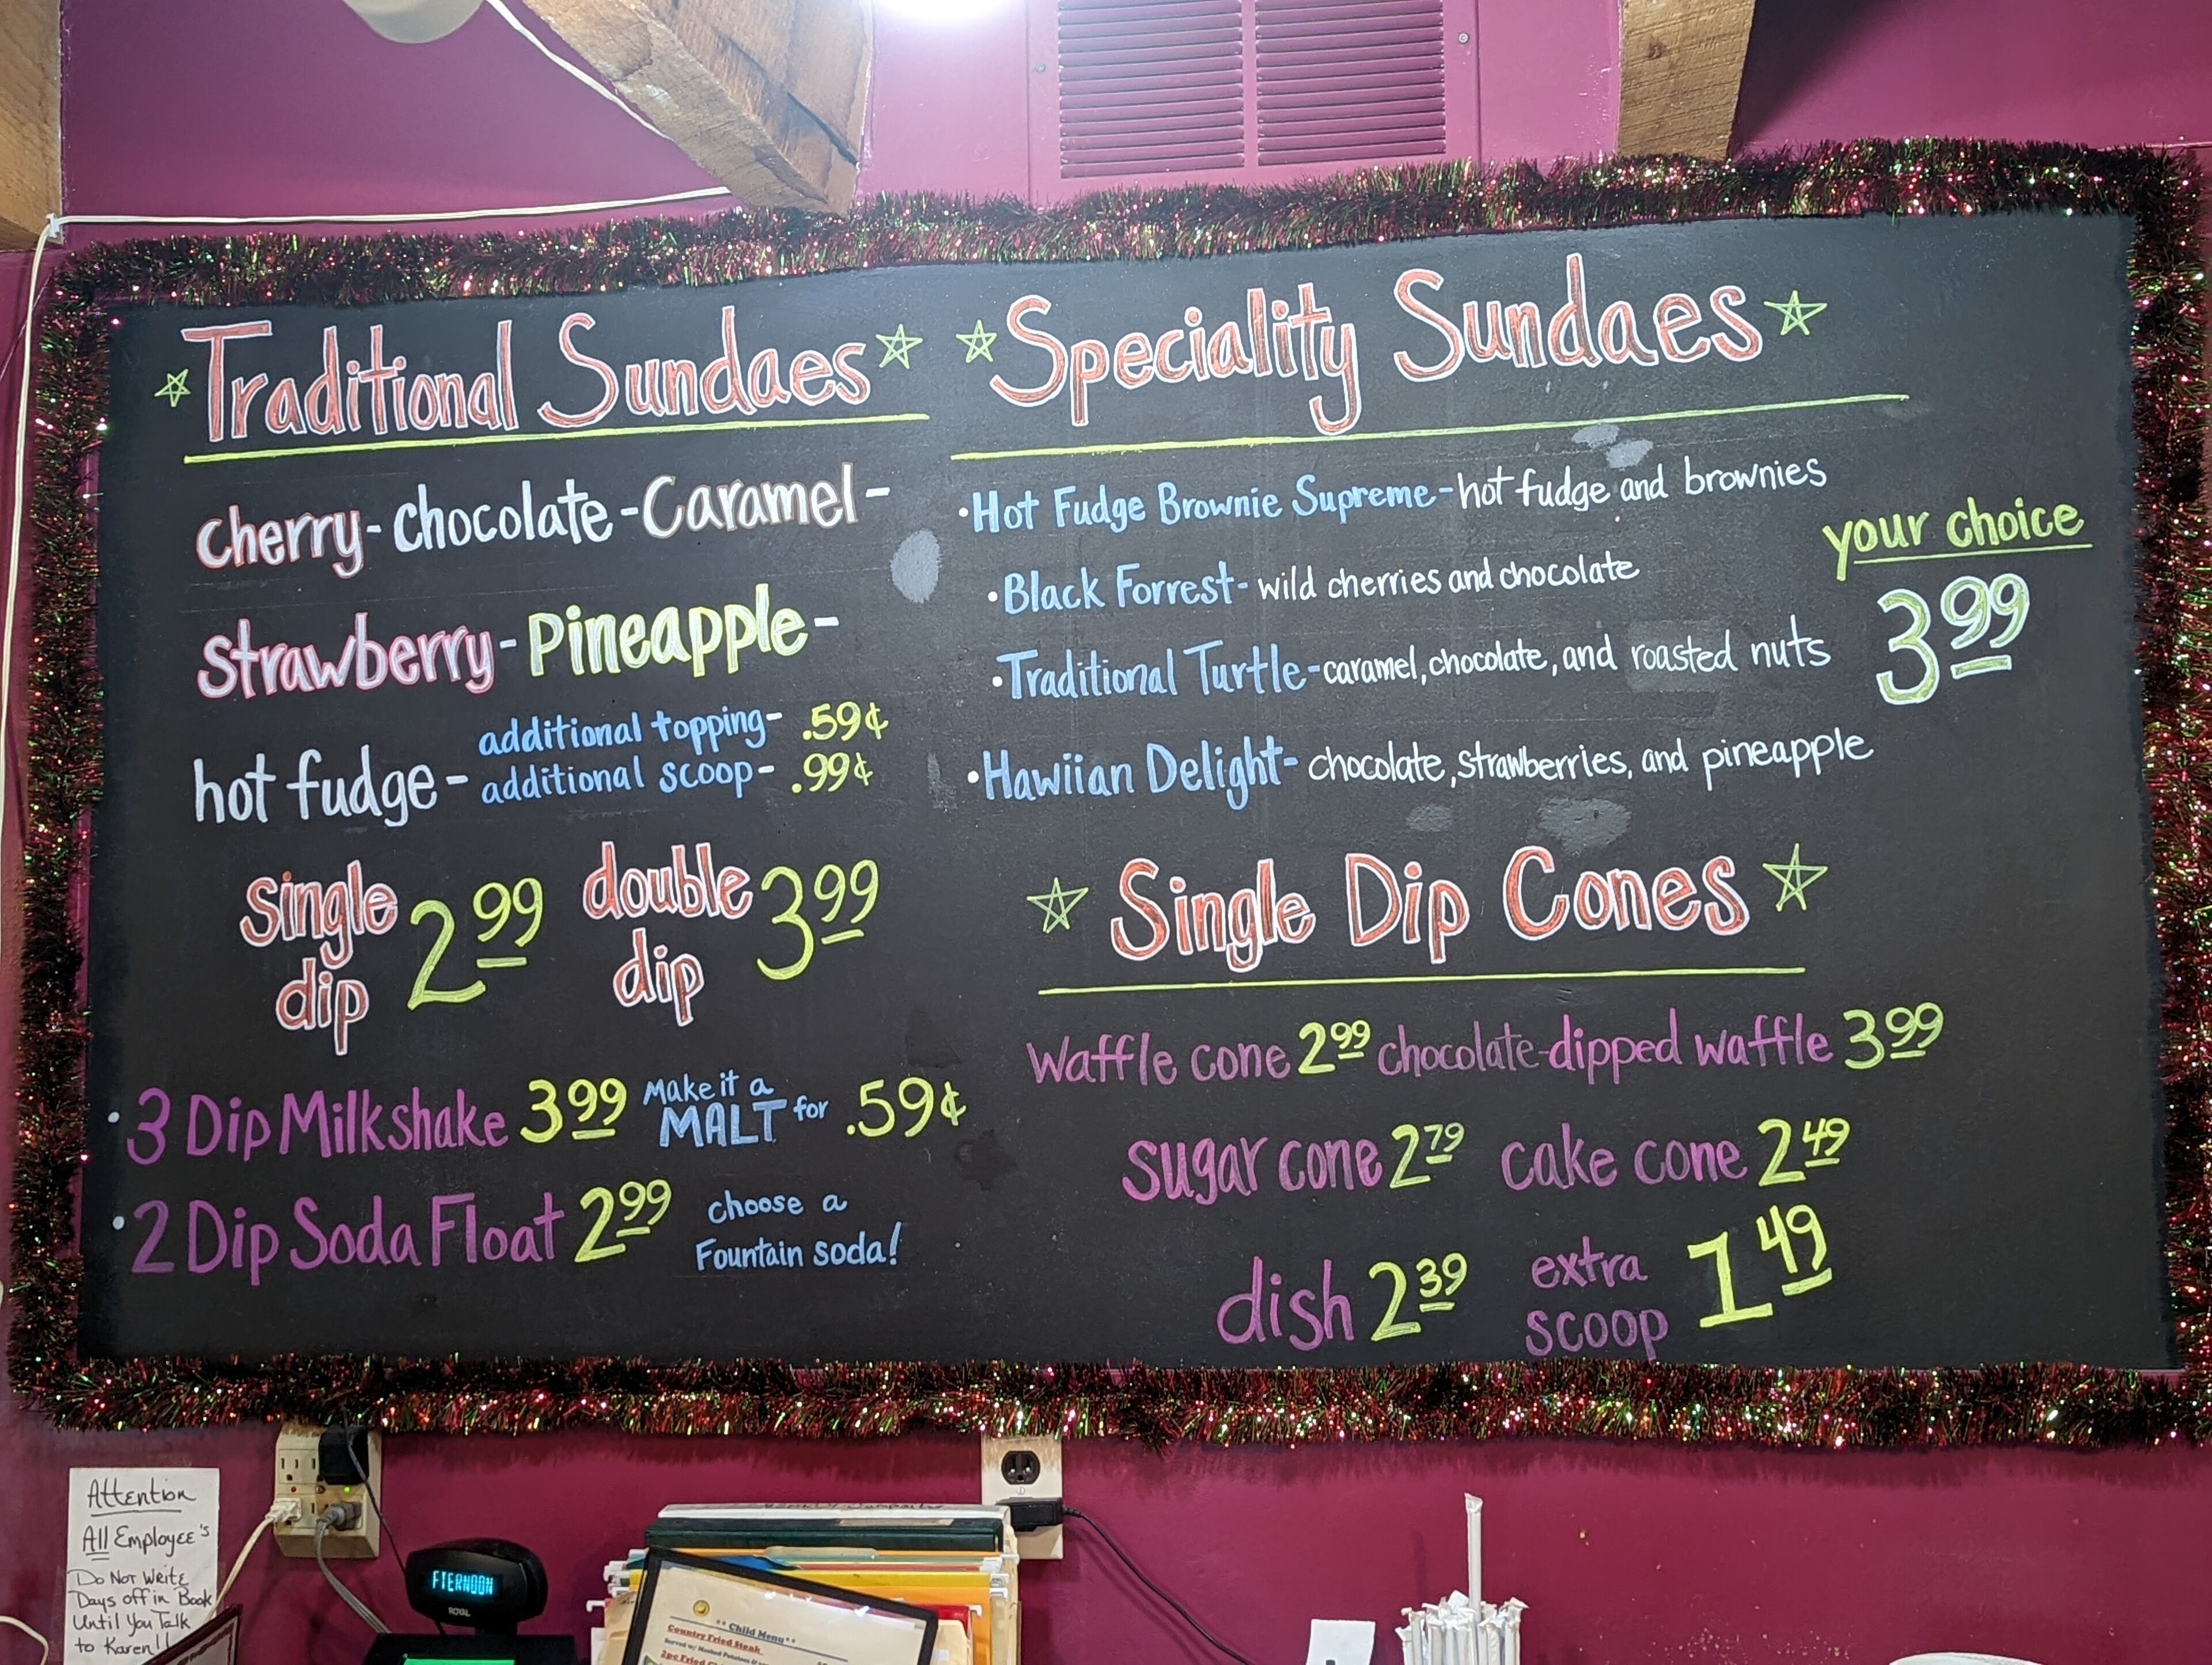 Traditional Sundaes
cherry - chocolate - Caramel -
strawberry - Pineapple -
hot fudge -
additional topping - .59¢
additional scoop - .99¢
single dip 2.99
double dip 3.99
• 3 Dip Milkshake 3.99 Make it a MALT for .59¢
• 2 Dip Soda Float 2.99 choose a Fountain soda!
Speciality Sundaes
• Hot Fudge Brownie Supreme - hot fudge and brownies
• Black Forrest - wild cherries and chocolate
• Traditional Turtle - caramel, chocolate, and roasted nuts
• Hawiian Delight - chocolate, strawberries, and pineapple
your choice
3.99
Single Dip Cones
Waffle cone 2.99 chocolate-dipped waffle 3.99
sugar cone 2.79 cake cone 2.49
dish 2.39 extra scoop 1.49
Attention
All Employee's
Do Not Write
Days off in Book
Until You Talk
to Karen!!
FTERNOON
ROYAL
**Child Menu**
Country Fried Steak
Served w/ Mashed Potatoes &
2pc Fried